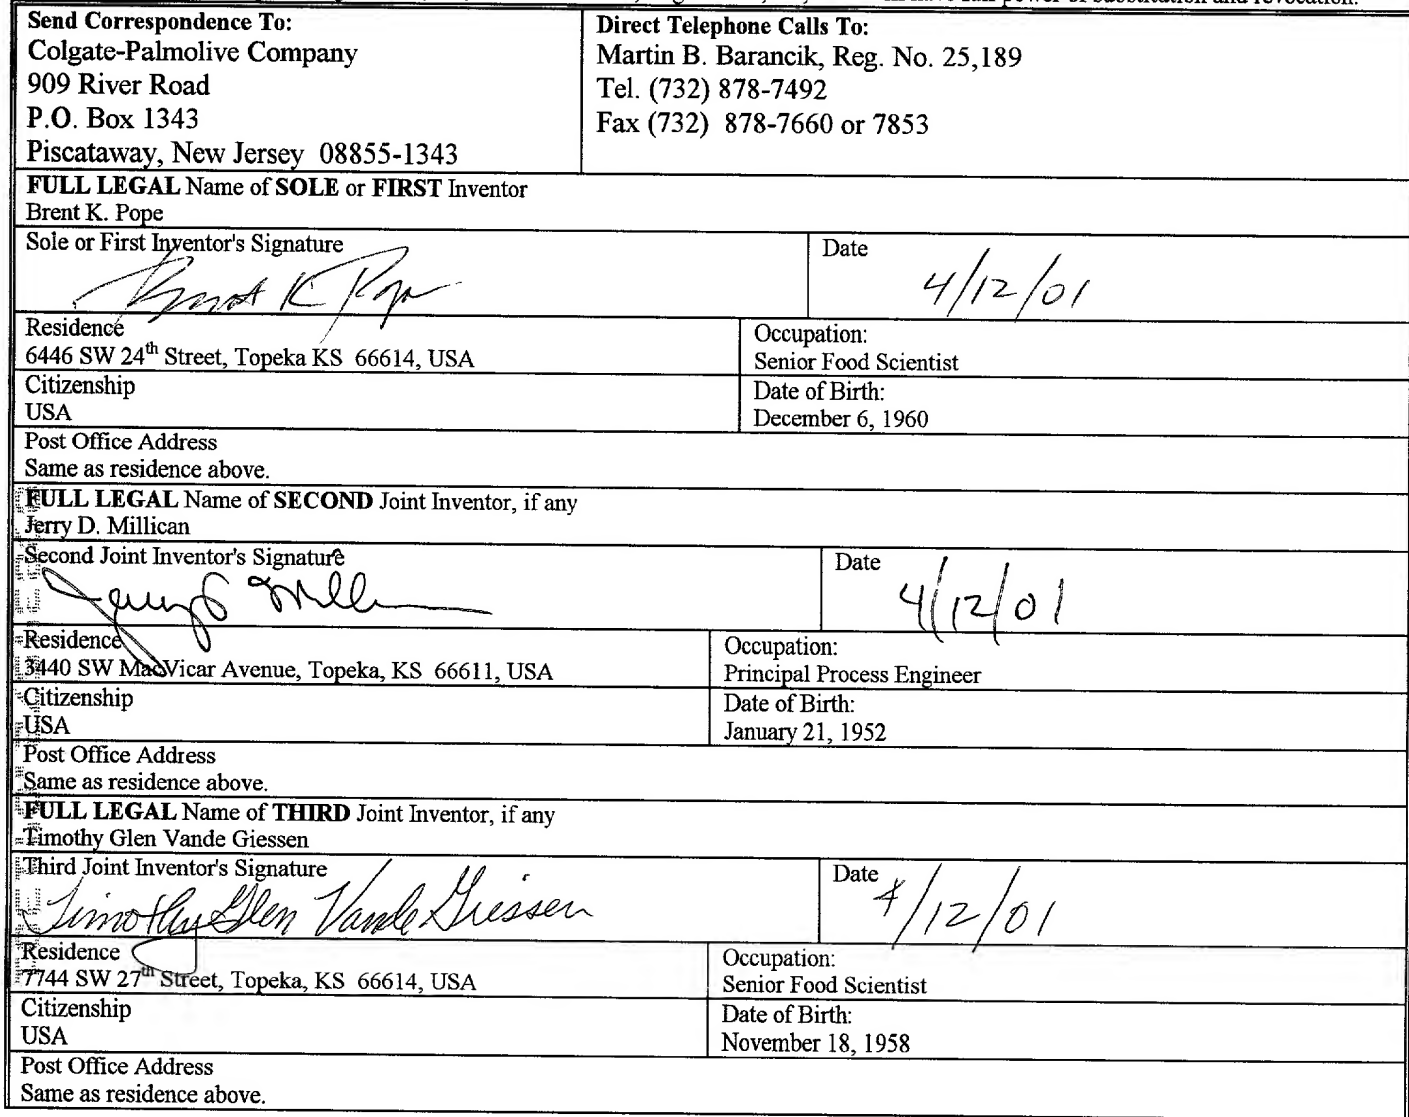 will have full power of substitution and revocation.
Send Correspondence To:
Colgate-Palmolive Company
909 River Road
P.O. Box 1343
Piscataway, New Jersey 08855-1343
Direct Telephone Calls To:
Martin B. Barancik, Reg. No. 25,189
Tel. (732) 878-7492
Fax (732) 878-7660 or 7853
FULL LEGAL Name of SOLE or FIRST Inventor
Brent K. Pope
Sole or First Inventor's Signature
Brent K Pope
Date
4/12/01
Residence
6446 SW 24th Street, Topeka KS 66614, USA
Occupation:
Senior Food Scientist
Citizenship
USA
Date of Birth:
December 6, 1960
Post Office Address
Same as residence above.
FULL LEGAL Name of SECOND Joint Inventor, if any
Jerry D. Millican
Second Joint Inventor's Signature
Jerry D Millican
Date
4/12/01
Residence
3440 SW MacVicar Avenue, Topeka, KS 66611, USA
Occupation:
Principal Process Engineer
Citizenship
USA
Date of Birth:
January 21, 1952
Post Office Address
Same as residence above.
FULL LEGAL Name of THIRD Joint Inventor, if any
Timothy Glen Vande Giessen
Third Joint Inventor's Signature
Timothy Glen Vande Giessen
Date
4/12/01
Residence
7744 SW 27th Street, Topeka, KS 66614, USA
Occupation:
Senior Food Scientist
Citizenship
USA
Date of Birth:
November 18, 1958
Post Office Address
Same as residence above.